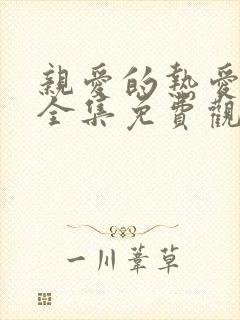 親愛的熱愛
全集免費觀
一川葦草